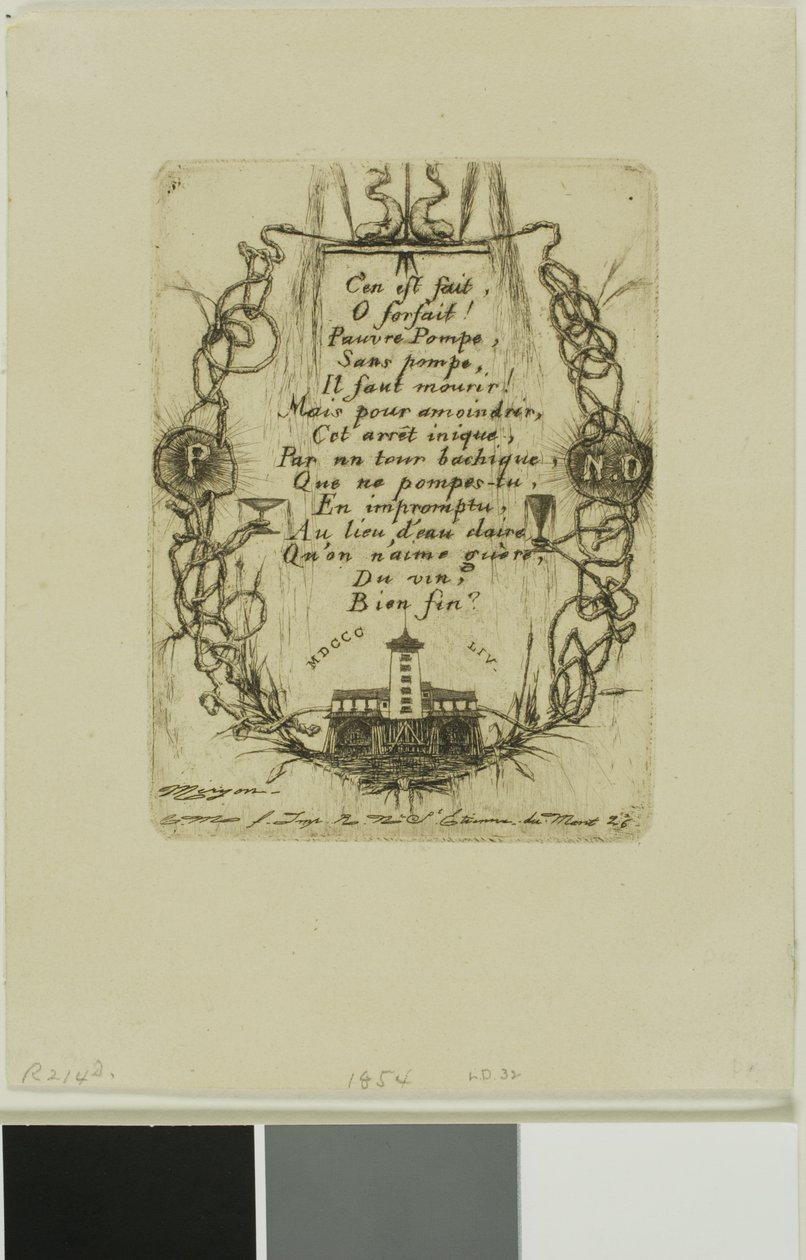 C'en est fait,
O forfait!
Pauvre Pompe,
Sans pompe,
Il faut mourir!
Mais pour amoindrir,
Cet arrêt inique,
Par un tour bachique,
Que ne pompes-tu,
En impromptu,
Au lieu d'eau claire
Qu'on n'aime guère,
Du vin,
Bien fin?
P
N.D
MDCCC LIV.
Meryon
f. Imp. R. Ne St Etienne du Mont 26
R214
1854
L.D. 32